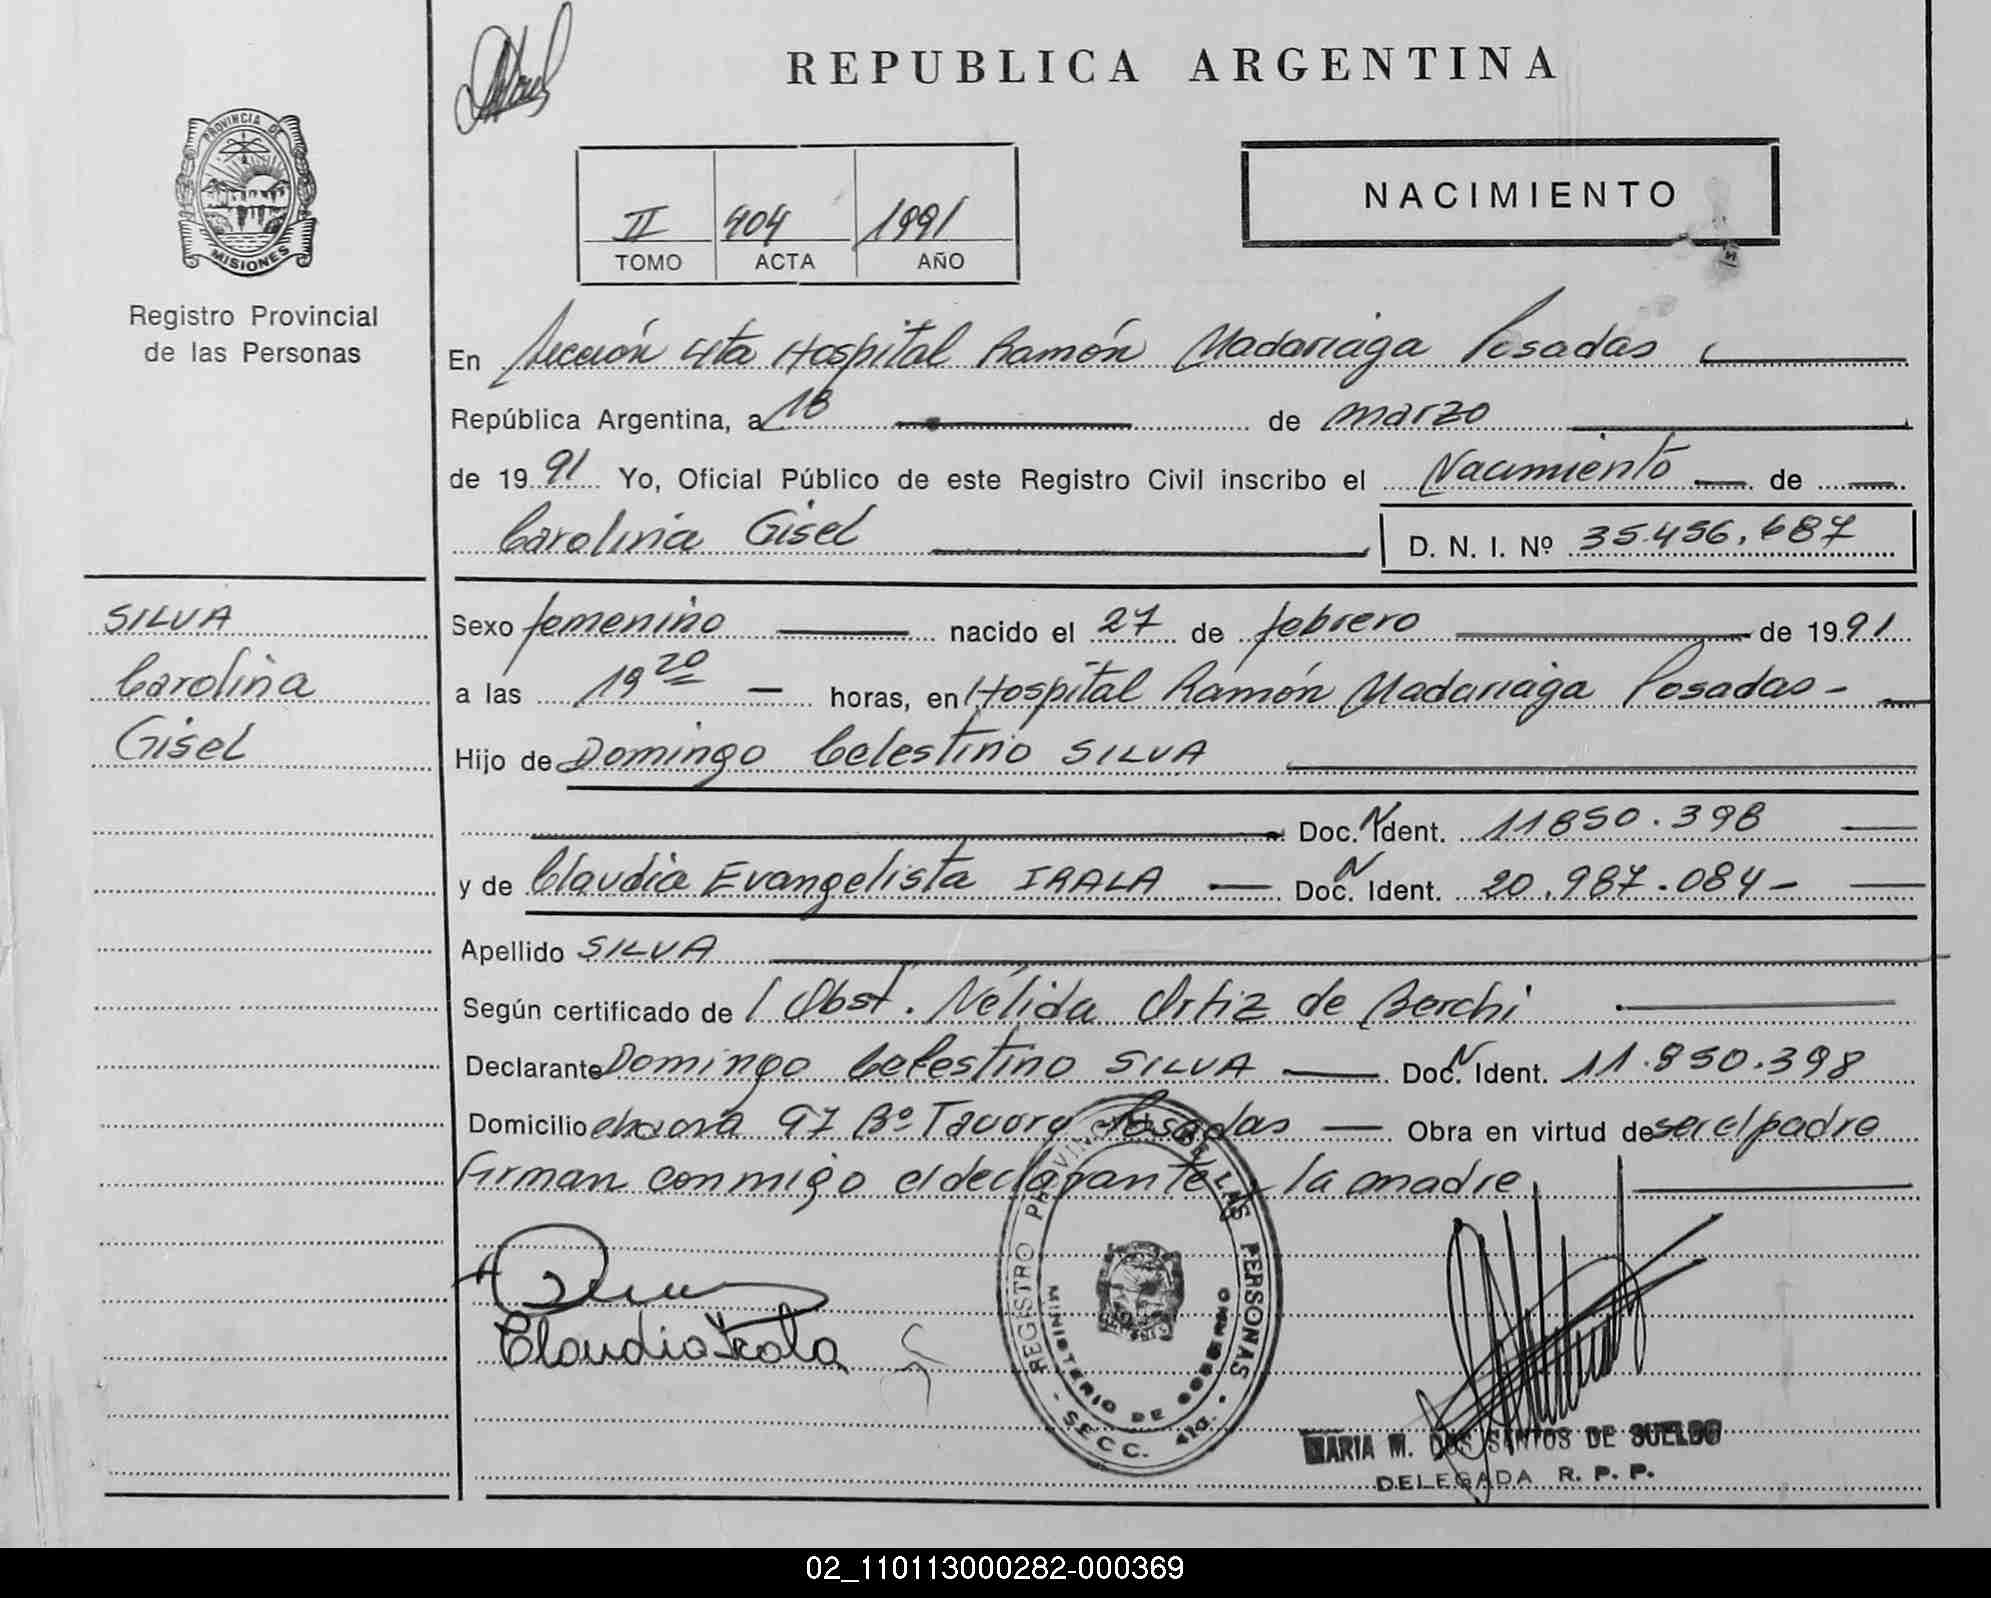 REPUBLICA ARGENTINA
PROVINCIA DE
MISIONES
Registro Provincial
de las Personas
II 404 1991
TOMO ACTA AÑO
NACIMIENTO
En Sección 4ta Hospital Ramón Madariaga Posadas
República Argentina, a 18 de marzo
de 1991 Yo, Oficial Público de este Registro Civil inscribo el Nacimiento de
Carolina Gisel D. N. I. Nº 35.456.687
SILVA
Carolina
Gisel
Sexo femenino nacido el 27 de febrero de 1991
a las 19 20 horas, en Hospital Ramón Madariaga Posadas -
Hijo de Domingo Celestino SILVA
Doc. N Ident. 11850.398
y de Claudia Evangelista IRALA Doc. N Ident. 20.987.084-
Apellido SILVA
Según certificado de Obst. Nélida Ortiz de Berchi
Declarante Domingo Celestino SILVA Doc. N Ident. 11.850.398
Domicilio chacra 97 Bº Posadas Obra en virtud de ser el padre
Firman conmigo el declarante y la madre
Claudia Irala
REGISTRO PROVINCIAL DE LAS PERSONAS
MINISTERIO DE GOBIERNO
SECC. 4ta.
MARIA M. DOS SANTOS DE SUELDO
DELEGADA R. P. P.
02_110113000282-000369